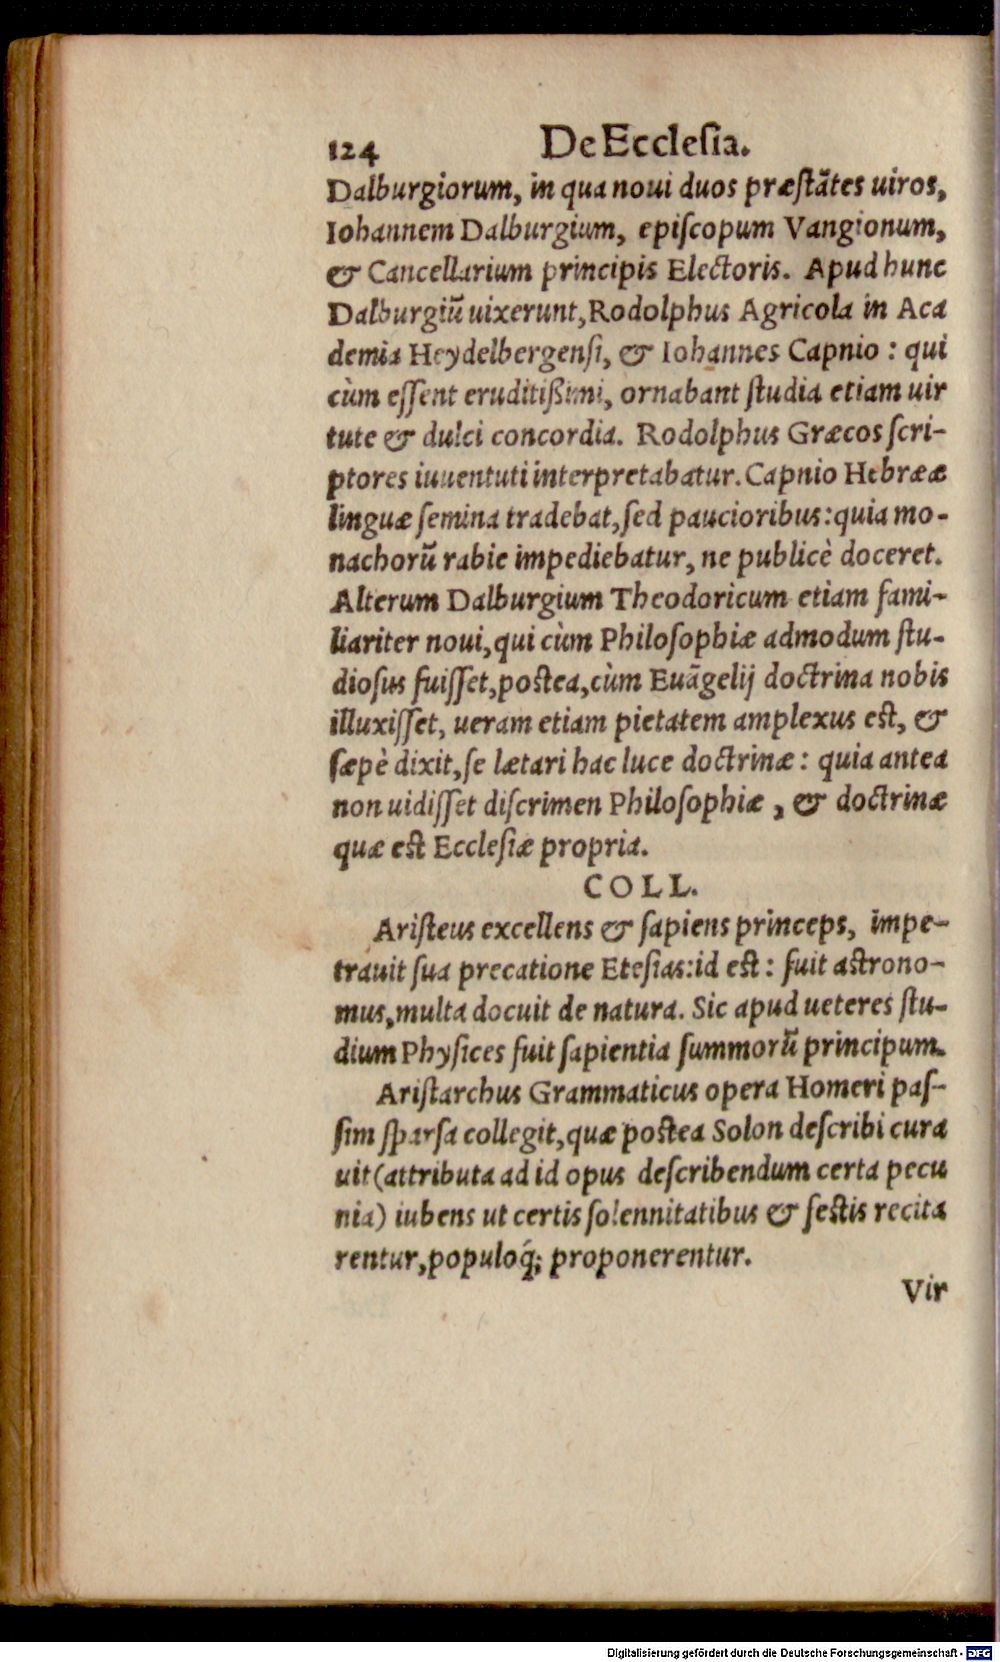 124 De Ecclesia.
Dalburgiorum, in qua noui duos præſtātes uiros,
Iohannem Dalburgium, epiſcopum Vangionum,
& Cancellarium principis Electoris. Apud hunc
Dalburgiū uixerunt, Rodolphus Agricola in Aca
demia Heydelbergenſi, & Iohannes Capnio : qui
cùm eſſent eruditißimi, ornabant ſtudia etiam uir
tute & dulci concordia. Rodolphus Græcos ſcri-
ptores iuuentuti interpretabatur. Capnio Hebrææ
linguæ ſemina tradebat, ſed paucioribus: quia mo-
nachorū rabie impediebatur, ne publicè doceret.
Alterum Dalburgium Theodoricum etiam fami-
liariter noui, qui cùm Philoſophiæ admodum ſtu-
dioſus fuiſſet, postea, cùm Euāgelij doctrina nobis
illuxiſſet, ueram etiam pietatem amplexus est, &
ſæpè dixit, ſe lætari hac luce doctrinæ : quia antea
non uidiſſet diſcrimen Philoſophiæ, & doctrinæ
quæ est Eccleſiæ propria.
COLL.
Ariſteus excellens & ſapiens princeps, impe-
trauit ſua precatione Eteſias: id est : fuit astrono-
mus, multa docuit de natura. Sic apud ueteres ſtu-
dium Phyſices fuit ſapientia ſummorū principum.
Ariſtarchus Grammaticus opera Homeri paſ-
ſim ſparſa collegit, quæ postea Solon deſcribi cura
uit (attributa ad id opus deſcribendum certa pecu
nia) iubens ut certis ſolennitatibus & feſtis recita
rentur, populoq́; proponerentur.
Vir
Digitalisierung gefördert durch die Deutsche Forschungsgemeinschaft - DFG